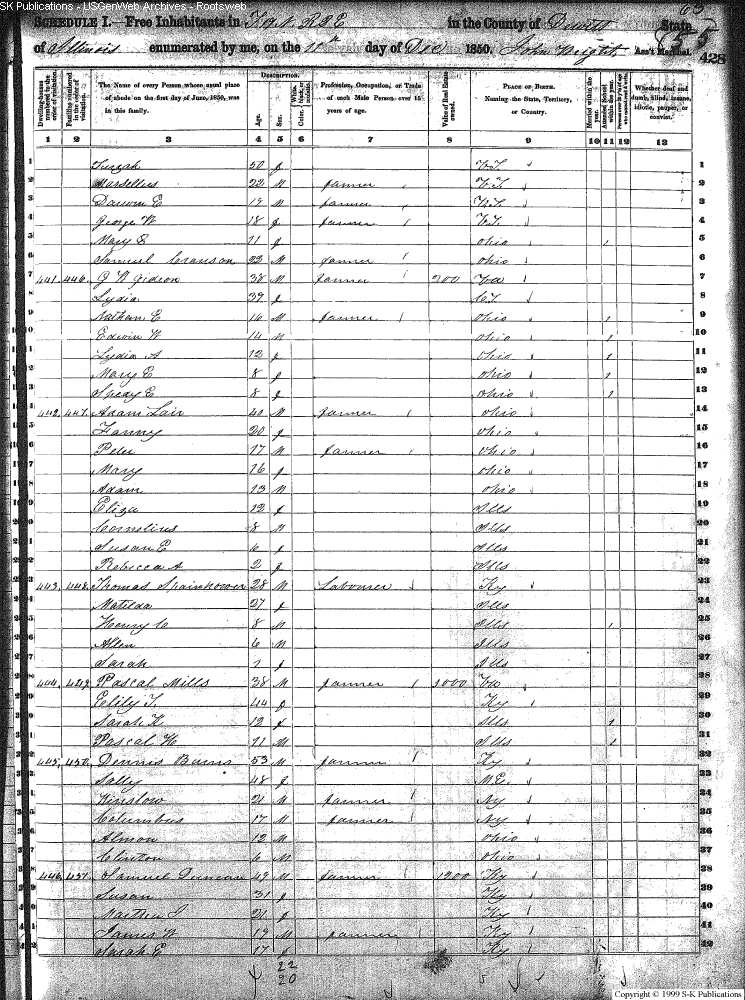 SK Publications - USGenWeb Archives - Rootsweb
65
SCHEDULE I.—Free Inhabitants in T 19 N. R 2 E in the County of Dewitt State
of Illinois enumerated by me, on the day of Dec 1850. John Ass't Marshal. 428
Dwelling-houses numbered in the order of visitation.
Families numbered in the order of visitation.
The Name of every Person whose usual place of abode on the first day of June, 1850, was in this family.
Description.
Age.
Sex.
White, black, or mulatto.
Profession, Occupation, or Trade of each Male Person over 15 years of age.
Value of Real Estate owned.
Place of Birth. Naming the State, Territory, or Country.
Married within the year.
Attended School within the year.
Persons over 20 y'rs of age who cannot read & write.
Whether deaf and dumb, blind, insane, idiotic, pauper, or convict.
1 2 3 4 5 6 7 8 9 10 11 12 13
1 50 f 1
2 Marsellus 22 M farmer 2
3 Darwin E 19 M farmer 3
4 George W 18 farmer 4
5 Mary E 11 f Ohio 1 5
6 Samuel Cranson 22 M farmer Ohio 6
7 441 446 G W Gideon 38 M farmer 200 Va 7
8 Lydia 39 f 8
9 Nathan E 16 M farmer Ohio 1 9
10 Edwin W 14 M Ohio 1 10
11 Lydia A 12 f Ohio 1 11
12 Mary E 8 f Ohio 1 12
13 E 8 f Ohio 1 13
14 442 447 Adam Lair 40 M farmer Ohio 14
15 Fanney 20 f Ohio 15
16 Peter 17 M farmer Ohio 16
17 Mary 16 f Ohio 17
18 Adam 13 M Ohio 18
19 Eliza 12 f Ills 19
20 Cornelius 8 M Ills 20
21 Susan E 6 f Ills 21
22 Rebecca A 2 f Ills 22
23 443 448 Thomas Spainhower 28 M Labourer Ky 23
24 Matilda 27 f Ills 24
25 Henry C 8 M Ills 1 25
26 Allen 6 M Ills 26
27 Sarah f Ills 27
28 444 449 Pascal Mills 38 M farmer 1000 Va 28
29 44 f Ky 29
30 Sarah K 12 f Ills 1 30
31 Pascal H 11 M Ills 1 31
32 445 450 Dennis Burns 53 M farmer 32
33 Sally 48 f 33
34 Winslow 21 M farmer NY 34
35 Columbus 17 M farmer NY 35
36 Almon 12 M Ohio 36
37 Clinton 6 M Ohio 37
38 446 451 Samuel Duncan 49 M farmer 1200 Ky 38
39 Susan 31 f Ky 39
40 21 f Ky 40
41 James W 19 M farmer Ky 41
42 Sarah E 17 f Ky 42
22
20
Copyright © 1999 S-K Publications